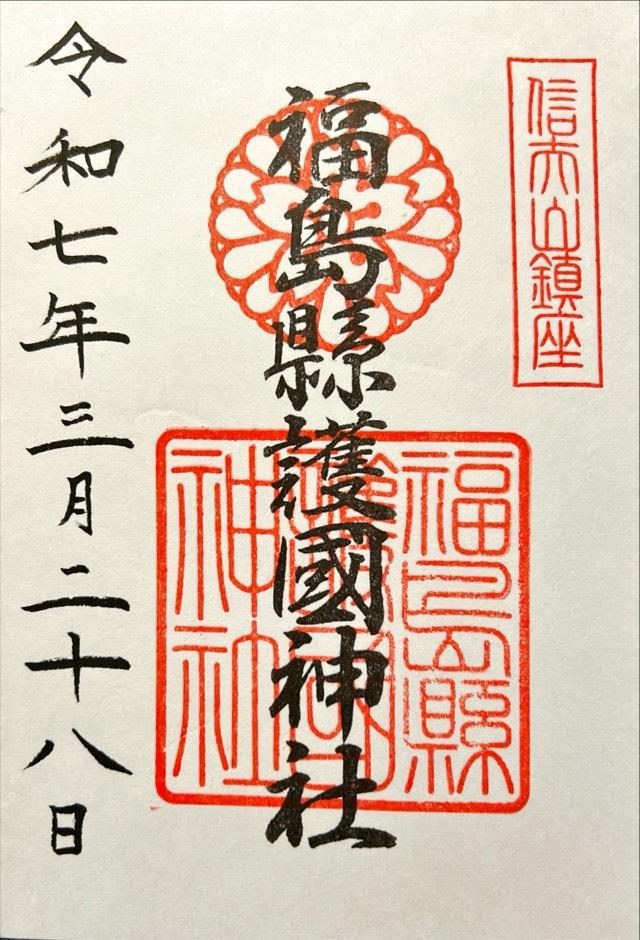 信夫山鎮座
福島縣護國神社
福島縣護國神社
令和七年三月二十八日